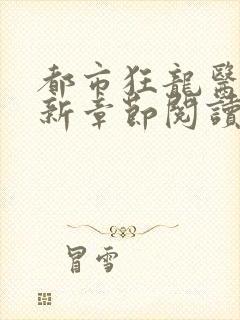 都市狂龍醫
新章節閱讀
冒雪